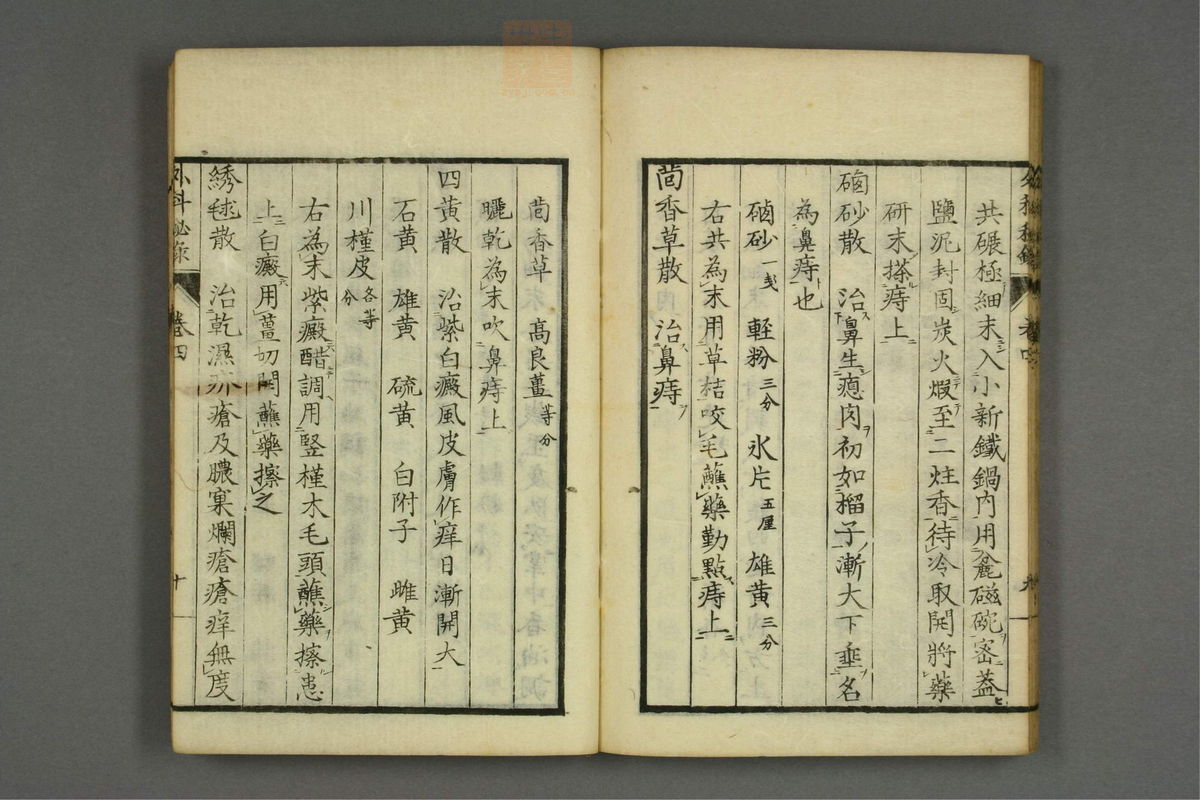 共碾極細末入小新鐵鍋内用麄磁碗宻葢
鹽泥封固炭火煅至二炷香待冷取開將藥
研末搽痔上
磠砂散 治鼻生瘜肉初如榴子漸大下垂名
為鼻痔也
磠砂一戔 輕粉三分 氷片五厘 雄黄三分
右共為末用草桔咬毛蘸藥勤點痔上
茴香草散 治鼻痔
茴香草 髙良薑等分
曬乾為末吹鼻痔上
四黄散 治紫白癜風皮膚作痒日漸開大
石黄 雄黄 硫黄 白附子 雌黄
川槿皮各等分
右為末紫癜醋調用竪槿木毛頭蘸藥擦患
上白癜用薑切開蘸藥擦之
綉毬散 治乾濕疥瘡及膿窠爛瘡瘡痒無度
外科秘录 卷四 十